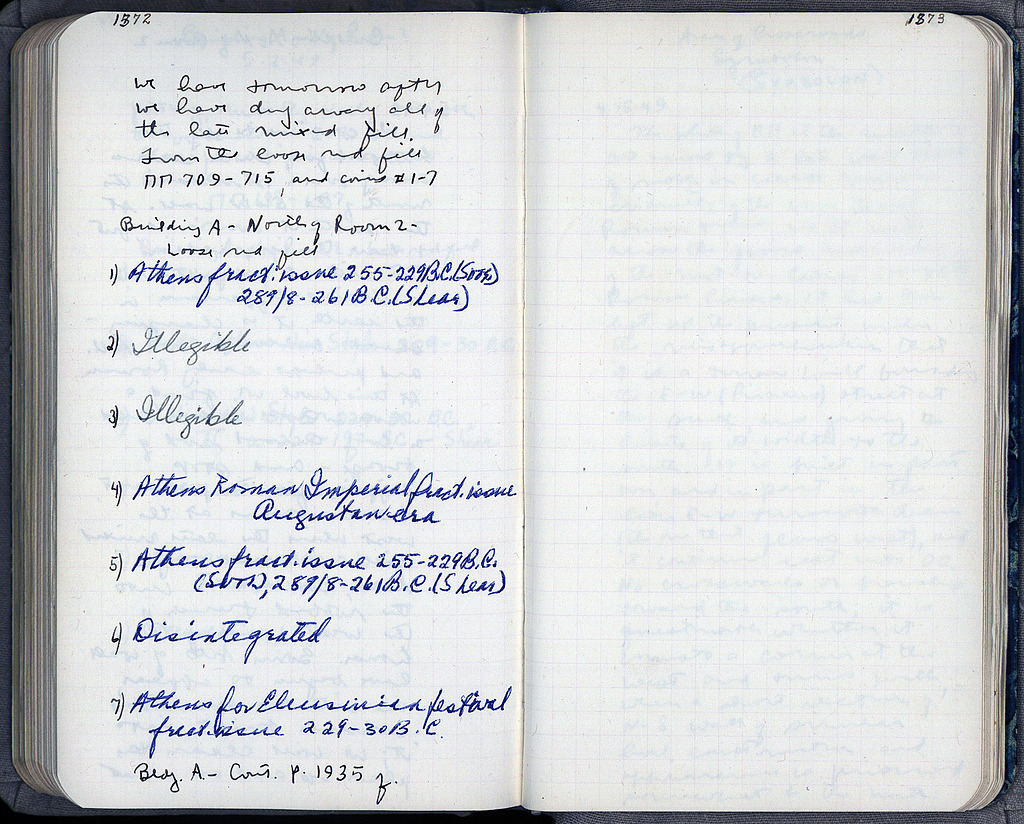 1372
1373
we have tomorrow after
we have dug away all of
the late mixed fill.
From the loose red fill
ΠΠ 709-715, and coins #1-7
Building A - North of Room 2-
Loose red fill
1) Athens fract. issue 255-229 B.C. (Svor.)
289/8-261 B.C. (Shear)
2) Illegible
3) Illegible
4) Athens Roman Imperial fract. issue
Augustan era
5) Athens fract. issue 255-229 B.C.
(Svor.), 289/8-261 B.C. (Shear)
6) Disintegrated
7) Athens for Eleusinian festival
fract. issue 229-30 B.C.
Bldg. A - Cont. p. 1935 f.